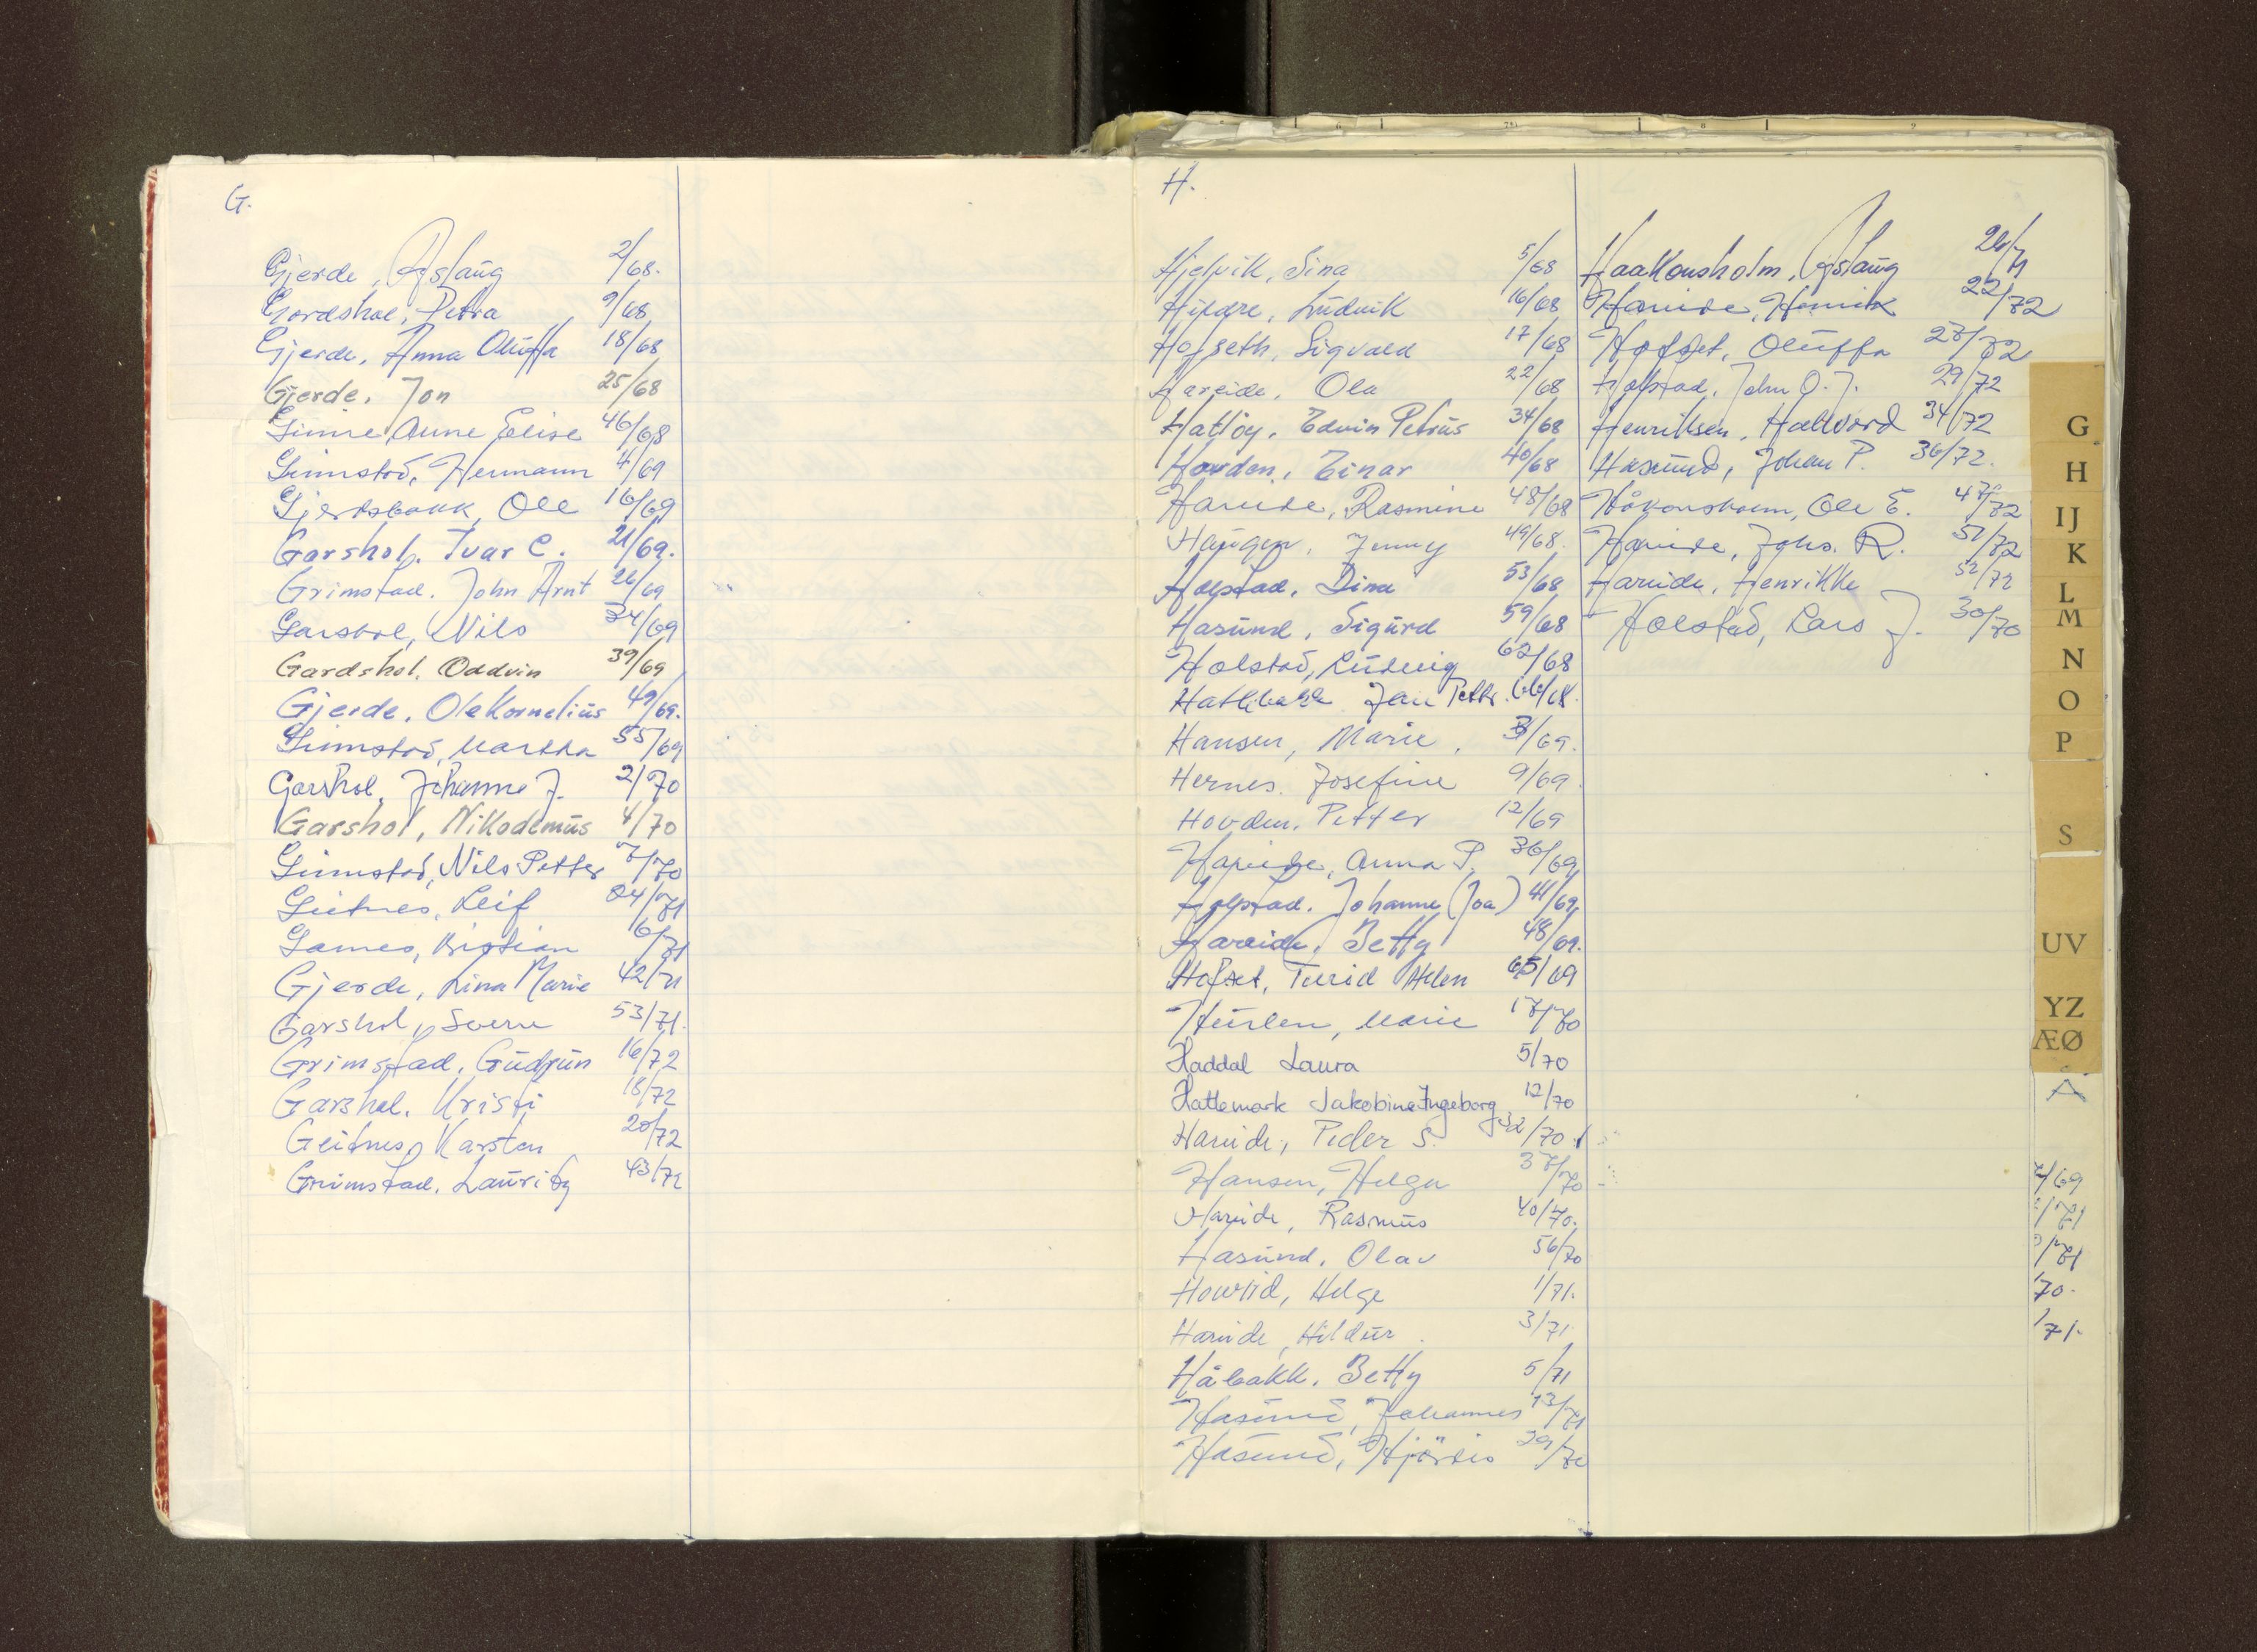 G.
Gjerde, Aslaug 2/68.
Gardshol, Petra 9/68
Gjerde, Anna Oluffa 18/68
Gjerde, Jon 25/68
Grimstad, Hermann 4/69
Gjerdsbakk, Ole 16/69
Garshol, Ivar C. 21/69.
Grimstad, John Arnt 26/69
Garshol, Nils 34/69
Gardshol, Oddvin 39/69
Gjerde, Ole Kornelius 49/69.
Grimstad, Martha 55/69
Garshol, Johanne J. 2/70
Garshol, Nikodemus 4/70
Grimstad, Nils Petter 7/70
Geitnes, Leif 04/71
6/71
Gjerde, Lina Marie 42/71
Garshol, Sverre 53/71.
Grimstad, Gudrun 16/72
Garshol, Kristi 18/72
Geitnes, Karsten 20/72
Grimstad, Lauritz 43/72
H.
Hjelvik, Sina 5/68
Ludvik 16/68
Hofseth, Sigvald 17/68
Hareide, Ola 22/68
Hatløy, Edvin Petrus 34/68
Hovden, Einar 40/68
Hareide, Rasmine 48/68
Haugen, Jenny 49/68.
Holstad, Dina 53/68
Hasund, Sigurd 59/68
Holstad, Ludvig 62/68
Jan Petter. 66/68.
Hansen, Marie, 3/69.
Hernes. Josefine 9/69.
Hovden, Petter 12/69
Hareide, Anna P. 36/69
Holstad, Johanne (Joa) 41/69
Hareide, Betty 48/69.
Hofset, Turid Helen 65/69
Marie 17/70
Haddal Laura 5/70
Hatlemark Jakobine Ingeborg 12/70
Hareide, Peder S. 32/70
Hansen, Helga 37/70
Hareide, Rasmus 40/70.
Hasund, Olav 56/70
Helge 1/71.
Hareide, Hildur 3/71
Håbakk, Betty 5/71
Hasund, Johannes 13/71
Hasund, Hjördis 29/70
Haakonsholm, Aslaug 26/71
Hareide, Henrik 22/72
Hofset, Oluffa 27/72
Holstad, John O. J. 29/72
Henriksen, Hallvard 34/72
Hasund, Johan P. 36/72.
Håkonsholm, Ole E. 47/72
Hareide, Johs. R. 51/72
Hareide, Henrikke 52/72
Holstad, Lars J. 30/70
G
H
IJ
K
L
M
N
O
P
S
UV
YZ
ÆØ
Å
/69
/71
/71
70.
/71.